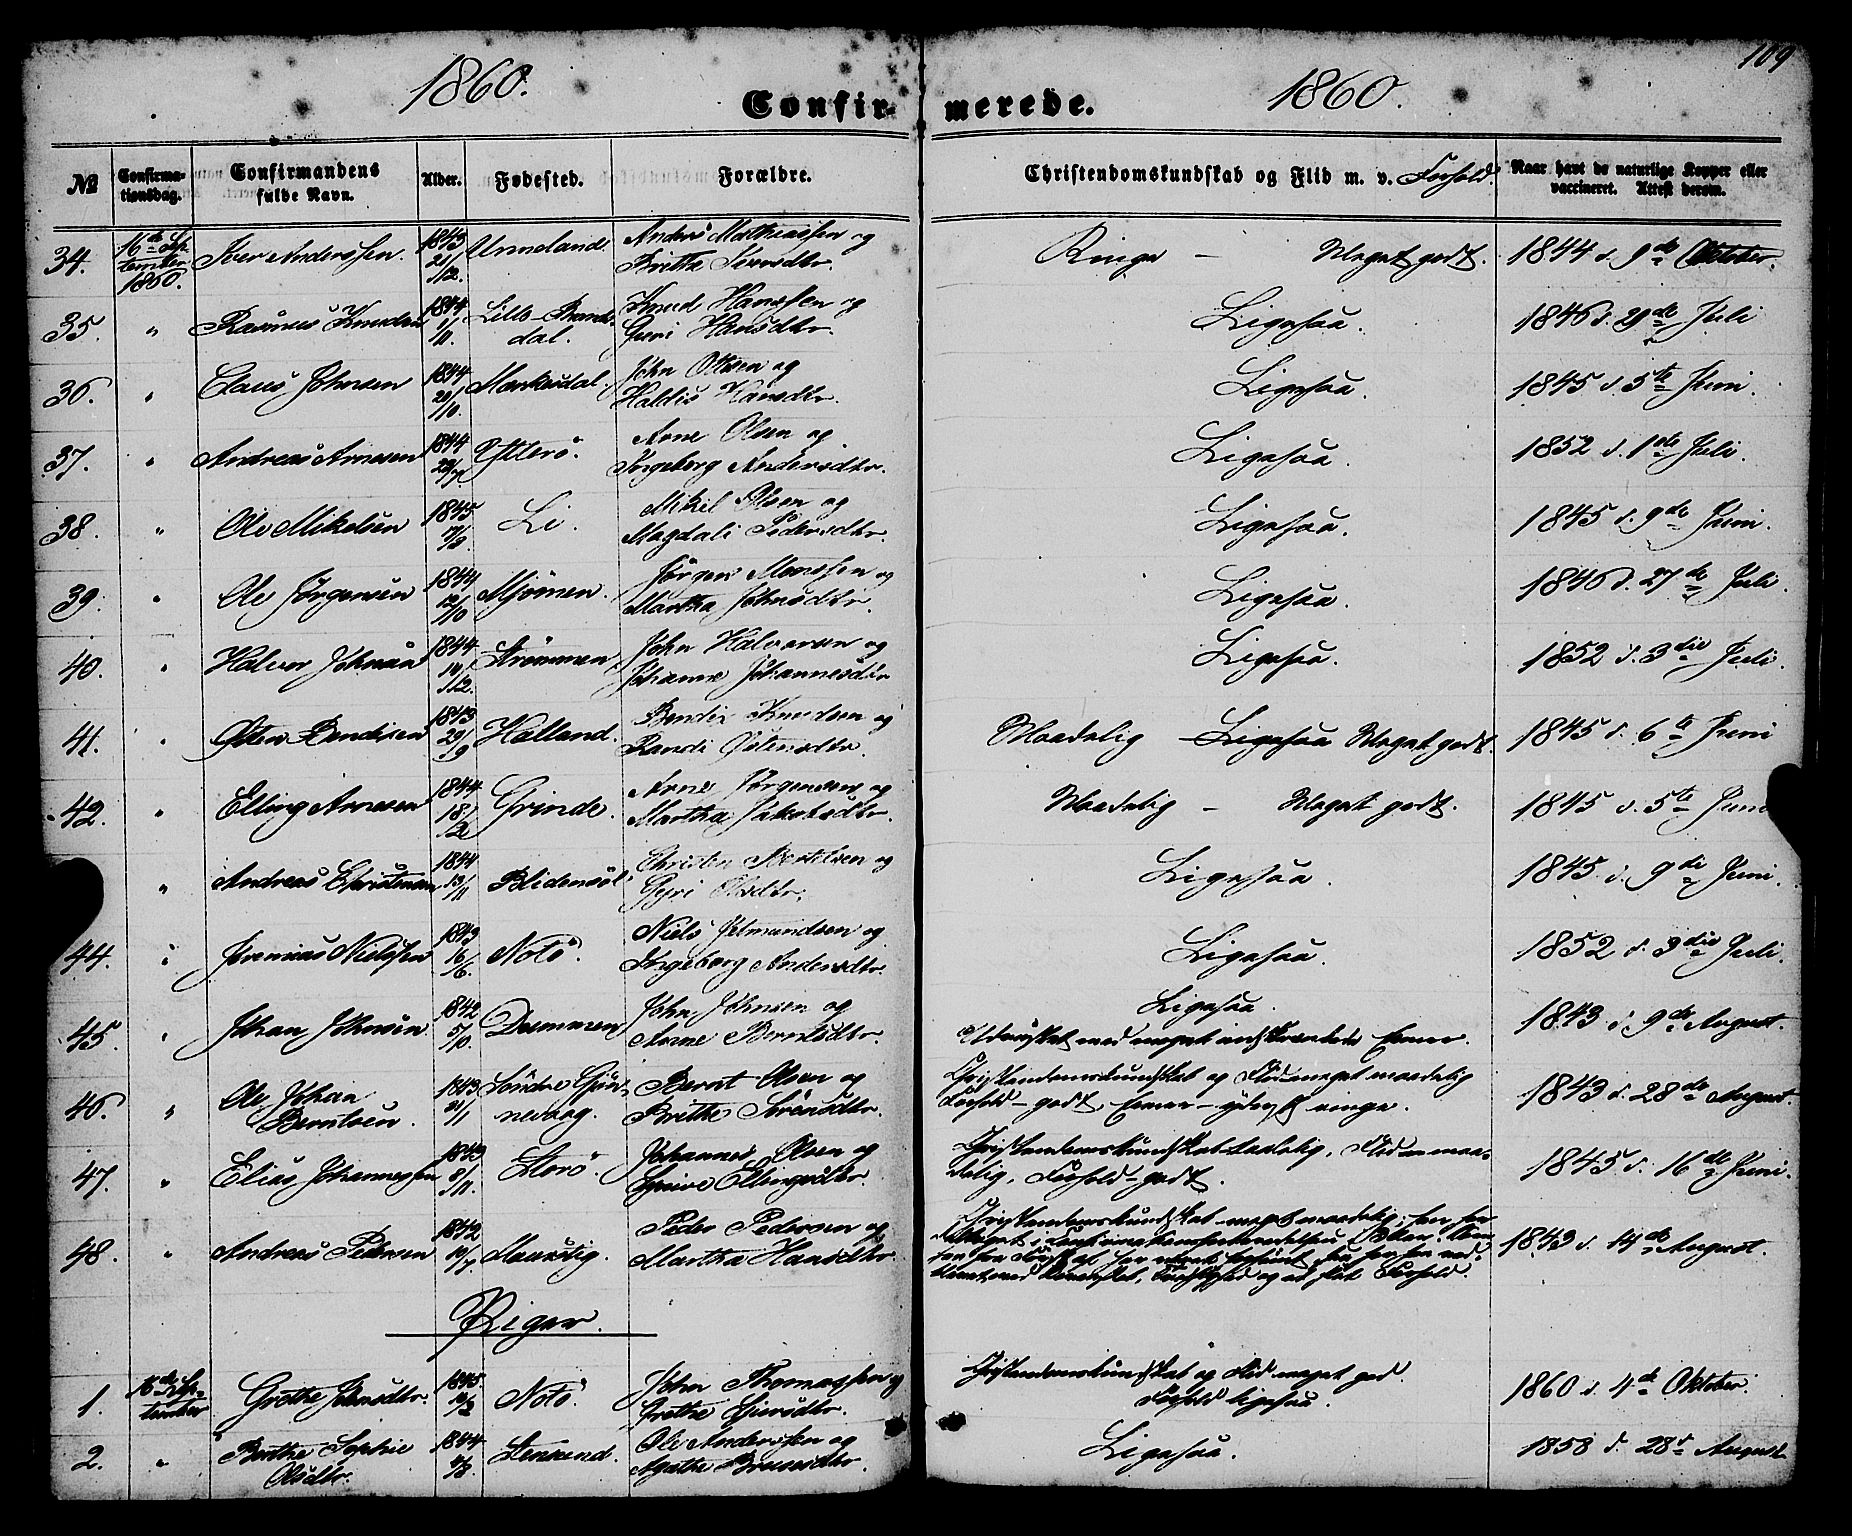 109
1860. 1860.
Confirmerede.
№ Confirmationsdag. Confirmandens fulde Navn. Alder. Fødested. Forældre. Christendomskundskab og Flid m. v. Forhold. Naar havt de naturlige Kopper eller vaccineret. Attest derom.
34. 16de September 1860. Iver Anderssen. 1843 21/12. Unneland. Anders Mathiassen og Brithe Iversdtr. Ringe – Meget godt. 1844 d. 9de Oktober.
35. " Rasmus Knudsen 1844 1/11. Lille-Brandsdal. Knud Hanssen og Guri Hansdtr. Ligesaa. 1846 d. 29de Juli
36. " Claus Johnsen 1844 20/10. John Olsen og Haldis Hansdtr. Ligesaa. 1845 d. 5te Juni.
37. " Andreas Arnesen 1844 29/7. Ytterö. Arne Olsen og Ingeborg Andersdtr. Ligesaa. 1852 d. 1de Juli.
38. " Ole Mikelsen 1845 Li. Mikel Olsen og Magdali Pedersdtr. Ligesaa. 1845 d. 9de Juni.
39. " Ole Jörgensen 1844 12/10 Mjömen. Jörgen Monssen og Martha Johnsdtr. Ligesaa. 1846 d. 27de Juli.
40. " Halvor Johnsen 1844 19/12. Strömmen John Halvorsen og Johanne Johannesdtr Ligesaa. 1852 d. 3die Juli.
41. " Østen Bendixen 1843 29/9 Halland. Bendix Knudsen og Randi Østensdtr. Maadelig – Ligesaa Meget godt. 1845 d. 6te Juni
42. " Elling Arnesen 1844 18/2 Grinde. Arne Jörgensen og Martha Jakobsdtr. Maadelig – Meget godt. 1845 d. 5te Juni
" Andreas Christensen 1844 13/11 Blidensöl Christen Bertelsen og Gyri Olsdtr. Ligesaa. 1845 d. 9de Juni.
44. " Jeremias Nielssen 1843 16/6. Notö. Niels Jetmundsen og Ingeborg Andersdtr. Ligesaa. 1852 d. 3die Juli.
45. " Johan Johnsen. 1842 5/10. Dremmen John Johnsen og Anne Berntsdtr. Ligesaa. Udrustet med meget indskrænkede Evner. 1843 d. 9de August.
46. " Ole Johan Berntsen. 1843 31/1 Söndre Gjönnevaag. Bernt Olsen og Brithe Sörensdtr. Christendomskundskab og Flid – meget maadelig Forhold – godt, Evner – yderst ringe. 1843 d. 28de August.
47. " Elias Johannessen 1843 8/11. Storö. Johannes Olsen og Ellingsdtr. Christendomskundskab – taalelig, Flid – maadelig, Forhold – godt. 1845 d. 16de Juni.
48. " Andreas Pedersen 1842 19/7. Maurstig. Peder Pedersen og Martha Hansdtr. Christendomskundskab – meget maadelig; og Forhold. 1843 d. 14de August.
Piger.
1. 16de September Grethe Jensdtr. 1845. Notö. John Thomassen og Grethe Christendomskundskab og Flid – meget god. Forhold ligesaa. 1860 d. 4de Oktober.
2. " Berthe Sophie Olsdtr. 1844 Ole Anderssen og Agathe Ligesaa. 1858 d. 28de August